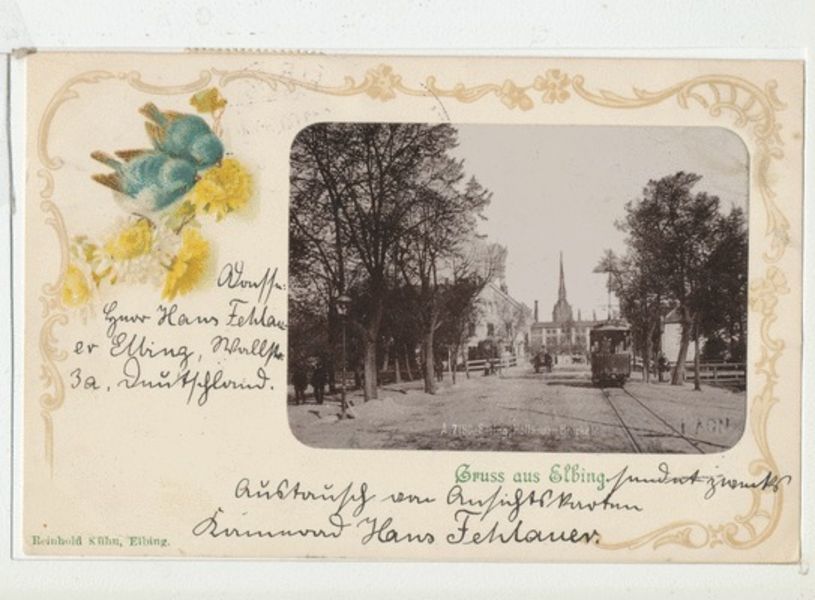 Adresse:
Herr Hans Fehlau-
er Elbing, Wallstr.
3a, Deutschland.
Gruss aus Elbing sendet zwecks
Austausch von Ansichtskarten
Hans Fehlauer.
Reinhold Kühn, Elbing.